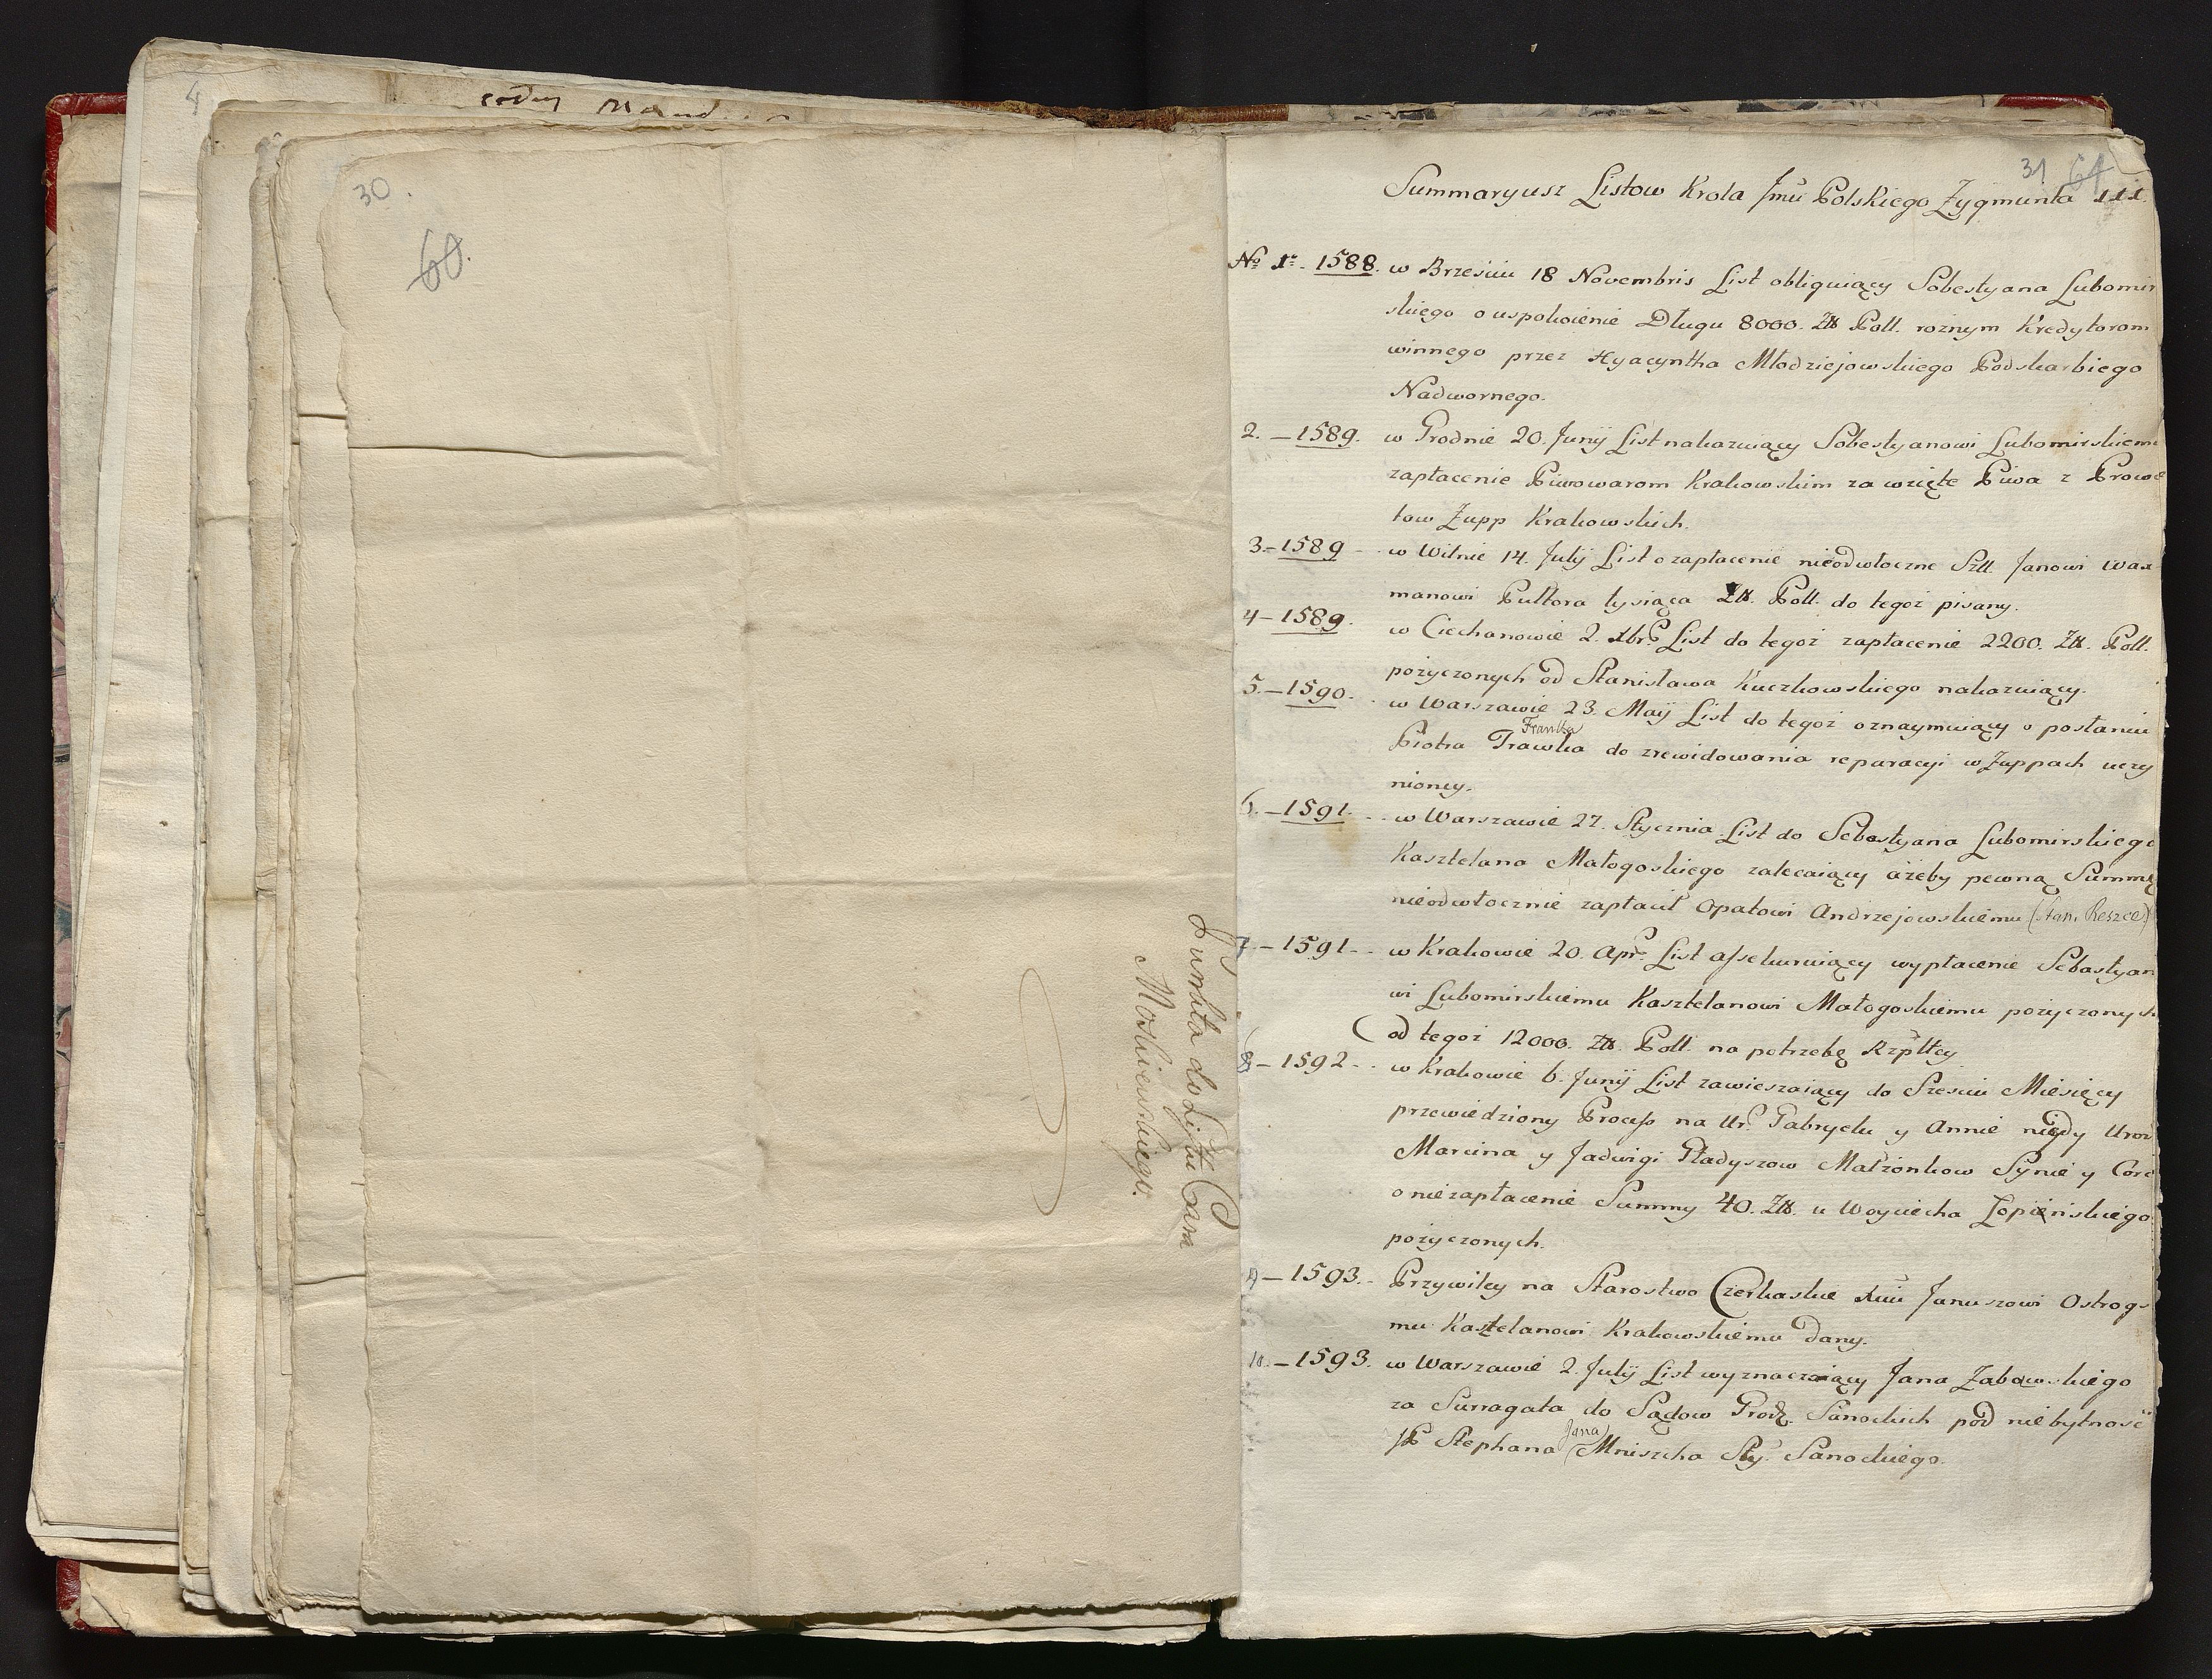 4
30.
60.
Junkta do Lystu Cara
Moskiewskiego.
31 61
Summaryusz Listow Krola Jmći Polskiego Zygmunta III.
No 1o. 1588. w Brzesciu 18 Novembris List obliguiący Sobestyana Lubomir
skiego o uspokoienie Długu 8000. Zlł Poll. roznym Kredytorom
winnego przez Hyacyntha Młodziejowskiego Podskarbiego
Nadwornego.
2. – 1589. w Grodnie 20. Junij List nakazuiący Sobestyanowi Lubomirskiemu
zapłacenie Piwowarom Krakowskim za wzięte Piwa z Prowe
tow Zupp Krakowskich.
3. – 1589 – w Wilnie 14. Julij List o zapłacenie nieodwłoczne Szll. Janowi Wax
manowi Pułtora tysiąca Zlł. Poll. do tegoż pisany.
4 – 1589. w Ciechanowie 2. Xbrs List do tegoż zapłacenie 2200. Zlł. Poll.
pożyczonych od Stanisława Kuczkowskiego nakazuiący.
5. – 1590. w Warszawie 23. Maij List do tegoż oznaymuiący o posłaniu
Franka
Piotra Trawka do zrewidowania reparacyi w Zuppach uczy
nioney.
6. – 1591. w Warszawie 27. Stycznia List do Sebastyana Lubomirskiego
Kasztelana Małogoskiego zalecaiący ażeby pewną Summę
nieodwłocznie zapłacił Opatowi Andrzejowskiemu (Stan. Reszce)
7. – 1591 – w Krakowie 20. Apr. List assekuruiący wypłacenie Sebastyan
wi Lubomirskiemu Kasztelanowi Małogoskiemu pożyczonych
od tegoż 12000. Zlł. Poll. na potrzebę Rzpltey
8 – 1592 – w Krakowie 6. Junij List zawieszaiący do Szesciu Miesięcy
przewiedziony Process na Ur. Gabryelu y Annie niegdy Uron
Marcina y Jadwigi Gładyszow Małżonkow Synie y Corc
o niezapłacenie Summy 40. Zlł. u Woyciecha Łopieńskiego
pożyczonych.
9 – 1593. Przywiley na Starostwo Czerkaskie Xciu Januszowi Ostrogs
mu Kasztelanowi Krakowskiemu dany.
10. – 1593. w Warszawie 2. Julij List wyznaczaiący Jana Zabawskiego
za Surragata do Sądow Grodz. Sanockich pod niebytność
Jana
JP Stephana Mniszcha Sty. Sanockiego.